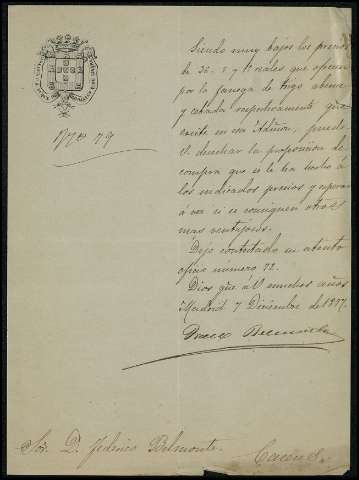 Nº 79
Siendo muy bajos los precios
de 36, y reales que ofrecen
por la fanega de trigo, abena
y cebada respectivamente que
existe en esa Admon, puede
V. desechar la proposicion de
compra que se le ha hecho á
los indicados precios y esperar
á ver si se consiguen otros
mas ventajosos.
Dejo contestado su atento
oficio número 72.
Dios gue á V. muchos años
Madrid 7 Diciembre de 1887.
Sor. D. Federico Belmonte.
Cáceres.